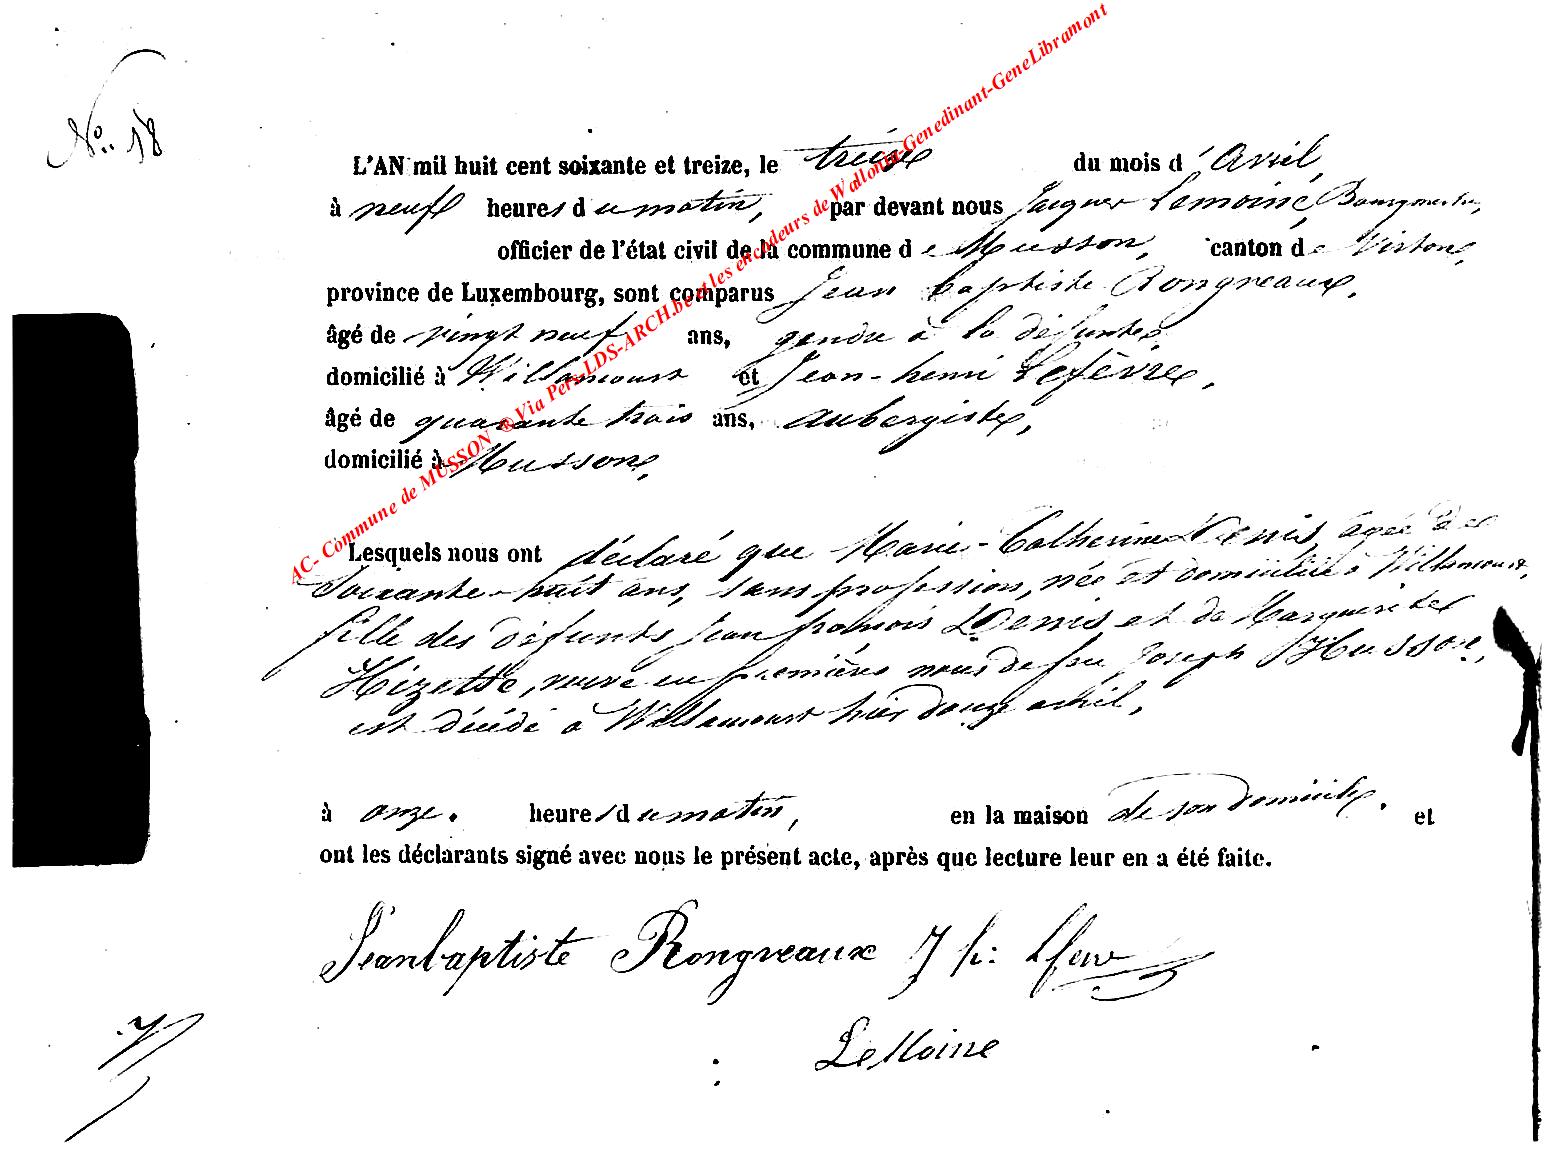 N° 18
L'AN mil huit cent soixante et treize, le treize du mois d'Avril,
à neuf heures du matin, par devant nous Jacques Lemoine, Bourgmestre,
officier de l'état civil de la commune de Musson, canton de Virton,
province de Luxembourg, sont comparus Jean baptiste Rongveaux,
âgé de vingt neuf ans, gendre à la défunte
domicilié à Willancourt et Jean-henri Lefèvre,
âgé de quarante trois ans, aubergiste,
domicilié à Musson,
Lesquels nous ont déclaré que Marie-Catherine Denis, âgée de
soixante-huit ans, sans profession, née et domiciliée à Willancourt,
fille des défunts Jean françois Denis et de Marguerite
Hizette, veuve en premières noces de feu Joseph Husson,
est décédé à Willancourt hier douze avril,
à onze. heures du matin, en la maison de son domicile. et
ont les déclarants signé avec nous le présent acte, après que lecture leur en a été faite.
Jeanbaptiste Rongveaux J h: Lfevr
LeMoine
AC- Commune de MUSSON ® Via Pers-LDS-ARCH.be et les encodeurs de Wallonia-Genedinant-GeneLibramont